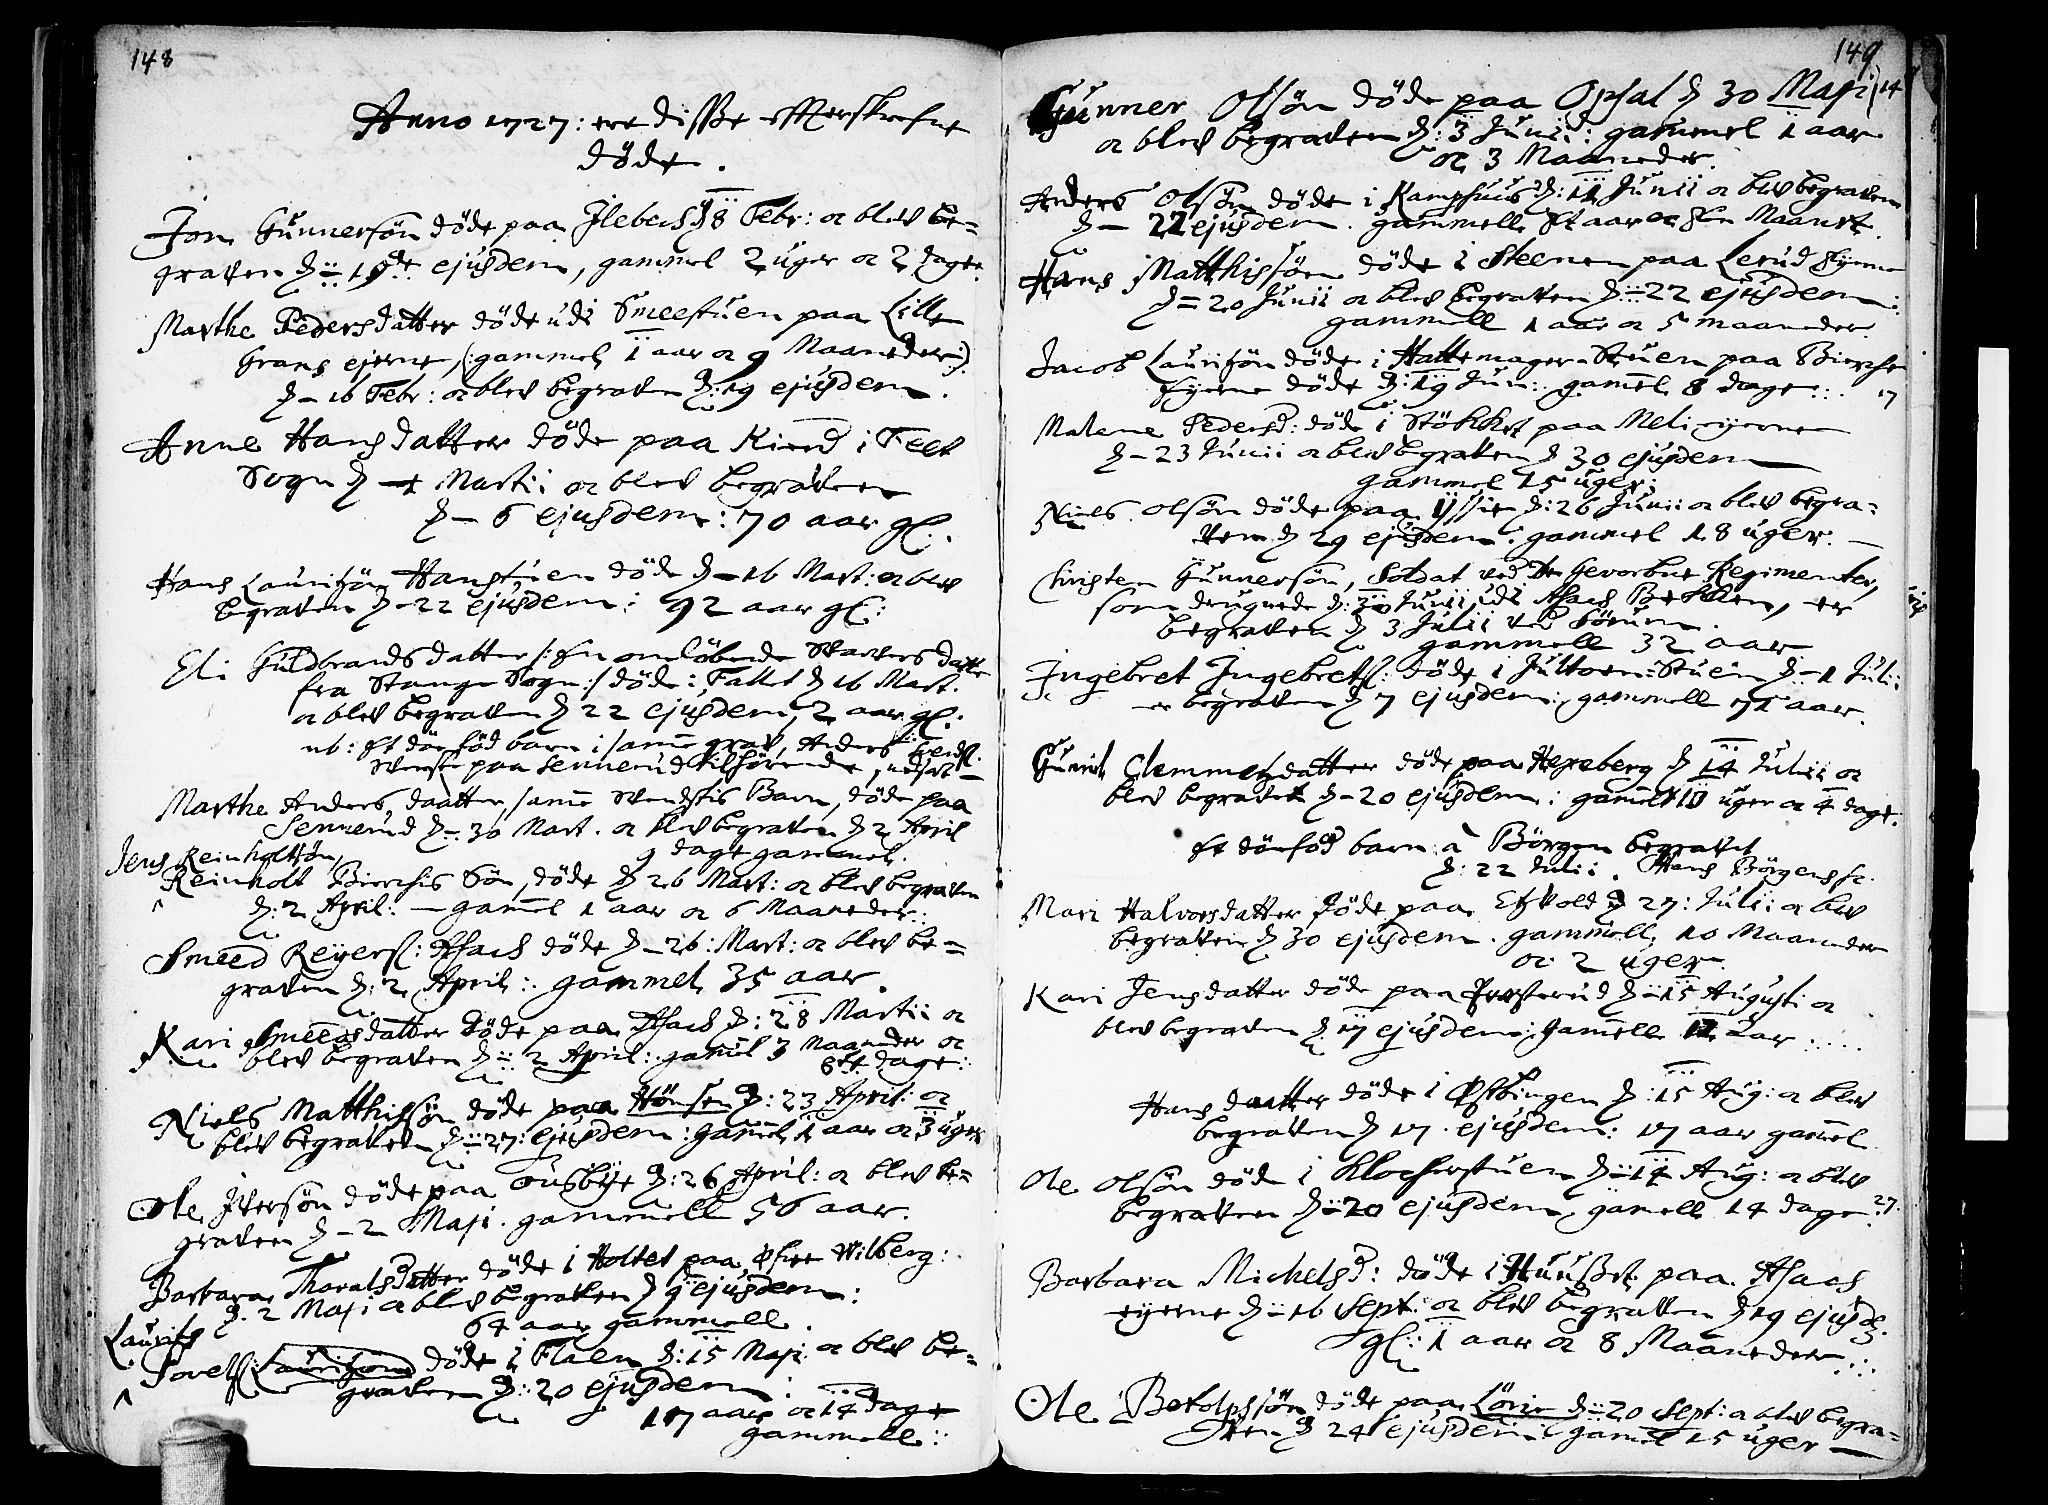 148
Anno 1727: ere disse efterskrefne
døde.
Jon Gunnersøn døde paa Ilebech d 18 Febr: oc blev be=
graven d: 19de ejusdem, gammel 2 uger oc 2 dage.
Marthe Pedersdatter døde udi Smeestuen paa Lille
Grans ejerne, (:gammel 1 aar oc 9 Maaneder:)
d - 16 Febr: oc blev begraven d: 19 ejusdem.
Anne Hansdatter døde paa Kiend i Feet
Sogn d - 1 Martii oc blev begraven
d - 6 ejusdem: 70 aar gl.
Hans Lauritzøn Hanstuen døde d - 16 Mart: oc blev
begraven d - 22 ejusdem: 92 aar gl:
Eli Guldbrandsdatter /: en omløbende datter
fra Stange Sogn:/ døde i Fallet d 16 Mart.
oc blev begraven d 22 ejusdem, 2 aar gl.
nb: et dødfød barn i samme grav, Anders
paa Sennerud tilhørende,
Marthe Andersdaatter, samme Barn, døde paa
Sennerud d - 30 Mart. oc blev begraven d 2 April
9 dage gammel.
Jens Reinholtsøn,
Reinholt Bierchis Søn, døde d 26 Mart: oc blev begraven
d: 2 April: - gammel 1 aar oc 6 Maaneder:
Smeed Reyers: Asach døde d - 26: Mart: oc blev be=
graven d: 2 April: gammel 35 aar.
Kari Smeedsdatter døde paa Asach d: 28 Martii oc
blev begraven d: 2 April: gamel 3 Maaneder oc
dage:
Niels Matthissøn døde paa Hønsen d: 23 April: oc
blev begraven d: 27: ejusdem: gamel 1 aar oc 3 uger
Ole Iversøn døde paa Tousbye d: 26 April: oc blev be=
graven d - 2 Maji. gammell 56 aar.
Barbara Tharalsdatter døde i Holtet paa Øfre Wilberg:
d. 2 Maji oc blev begraven d 9 ejusdem:
64 aar gammell.
Lauritz
Povels: Lauritzøn døde i Flaen d: 15 Maji oc blev be=
graven d: 20 ejusdem:
17 aar oc 14 dage
gammell:
149
Gunner Olsøn døde paa Opsal d 30 Maji 14
oc blev begraven d: 3 Junii: gammel 1 aar
oc 3 Maaneder.
Anders Olsøn døde i Kamphuus d: 14 Junii oc blev begraven
d - 22 ejusdem. gammell Et aar oc En Maanet.
Hans Matthissøn døde i Steenen paa Lerud Eyerne
d = 20 Junii oc blev begraven d: 22 ejusdem:
gammell 1 aar oc 5 maaneder
Jacob Lauritzøn døde i Hattemager Stuen paa Bierche
Eyerne døde d: 19 Jun: gamel 8 dage: 17
Malene Pedersd: døde i Støkket paa Meli eyerne
d - 23 Junii oc blev begraven d 30 ejusdem
gammel 15 uger:
Niels Olsøn døde paa d: 26 Junii oc blev begra=
ven d 29 ejusdem: gammel 18 uger. -
Christen Gunnersøn, Soldat ved de Gevorbne Regimenter,
som drugnede d: 30 Junii udi Asach Bekken, er
begraven d 3 Julii ved Sørum.
gammell 32 aar
Ingebret Ingebrets: døde i Stuen d - 1 Julii
er begraven d 7 ejusdem: gammell 71 aar.
Gunil Clemmetsdatter døde paa Hexeberg d 14 Julii oc
blev begravet d - 20 ejusdem: gamel 10 uger oc 4 dage.
Et dødfød barn a Børgen begravet
d: 22 Julii. Hans Børgens
Mari Halvorsdatter døde paa Etzvold d 27: Julii oc blev
begraven d 30 ejusdem. gammell 10 Maaneder
oc 2 uger.
Kari Jensdatter døde paa d: 15 Augusti oc
blev begraven d: 17 ejusdem: Gamell 12 aar
Hans daatter døde i Østbingen d: 15 Aug: oc blev
begraven d 17. ejusdem: 17 aar gamel
Ole Olsøn døde i Klocherstuen d: 14 Aug: oc blev
begraven d: 20 ejusdem, gamell 14 dage. 27.
Barbara Michelsd: døde i Huuset paa Asach
eyerne d: 16 Sept: oc blev begraven d 19 ejusd:
gl: 1 aar oc 8 Maaneder
Ole Botolphsøn døde paa Lörie d: 20 Sept: oc blev begra=
ven d 24 ejusdem: gamel 15 uger -